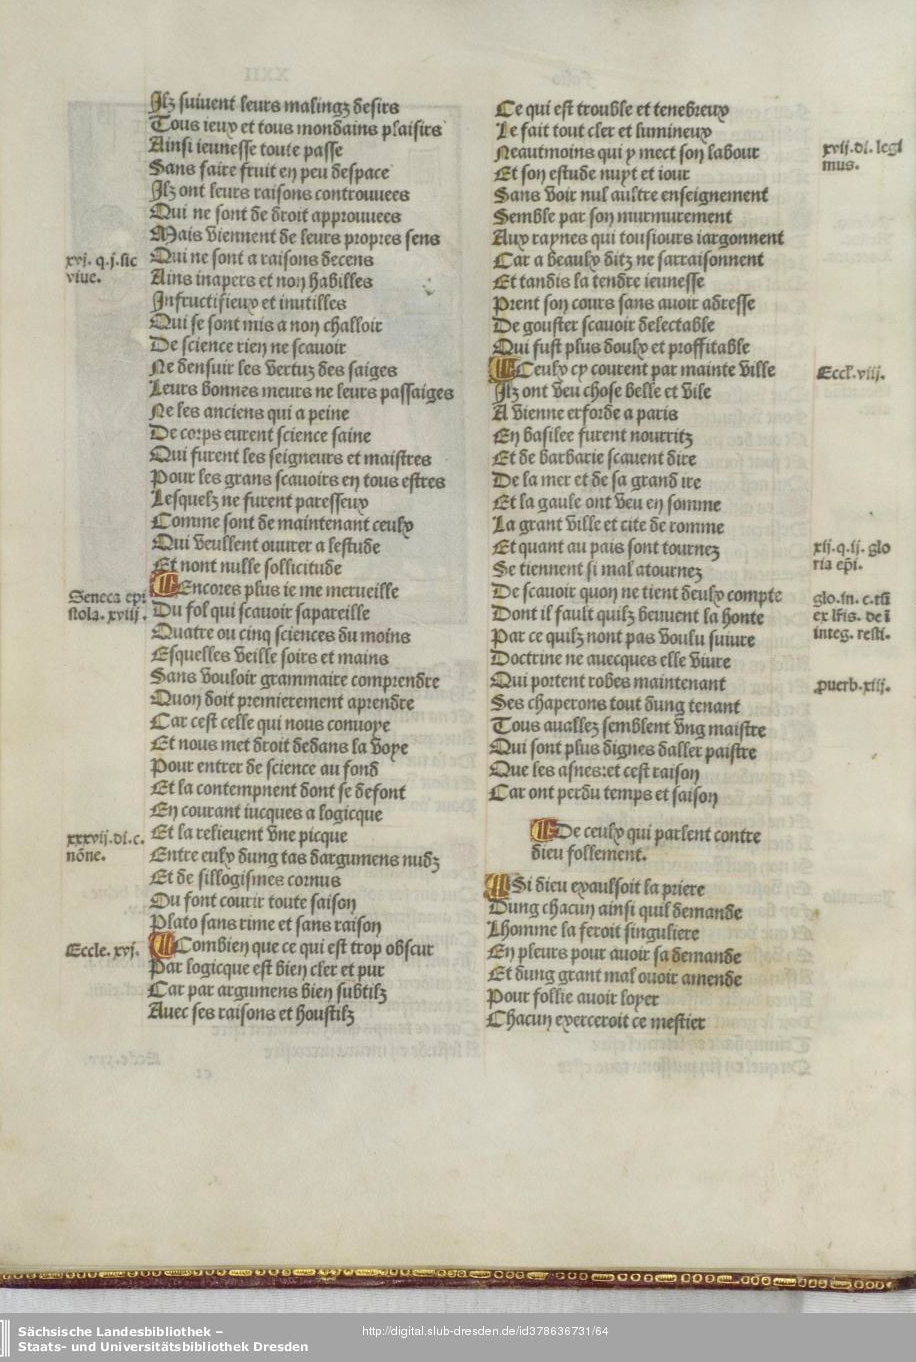 Ilz suiuent leurs malingz desirs
Tous ieux et tous mondains plaisirs
Ainsi ieunesse toute passe
Sans faire fruit en peu despace
Ilz ont leurs raisons controuuees
Qui ne sont de droit approuuees
Mais viennent de leurs propres sens
Qui ne sont a raisons decens
Ains inapers et non habilles
Infructifieux et inutilles
Qui se sont mis a non challoir
De science rien ne scauoir
Ne densuir les vertuz des saiges
Leurs bonnes meurs ne leurs passaiges
Ne les anciens qui a peine
De corps eurent science saine
Qui furent les seigneurs et maistres
Pour les grans scauoirs en tous estres
Lesquelz ne furent paresseux
Comme sont de maintenant ceulx
Qui veullent ouurer a lestude
Et nont nulle sollicitude
Encores plus ie me merueille
Du fol qui scauoir sapareille
Quatre ou cinq sciences du moins
Esquelles veille soirs et mains
Sans vouloir grammaire comprendre
Quon doit premierement aprendre
Car cest celle qui nous conuoye
Et nous met droit dedans la voye
Pour entrer de science au fond
Et la contempnent dont se defont
En courant iucques a logicque
Et la relieuent vne picque
Entre eulx dung tas dargumens nudz
Et de sillogismes cornus
Ou font courir toute saison
Plato sans rime et sans raison
Combien que ce qui est trop obscur
Par logicque est bien cler et pur
Car par argumens bien subtilz
Auec ses raisons et houstilz
xvj. q.j.sic
viue.
Seneca epi
stola. xviij.
xxxvij.di.c.
nõne.
Eccle. xvj.
Ce qui est trouble et tenebreux
Le fait tout cler et lumineux
Neautmoins qui y mect son labour
Et son estude nuyt et iour
Sans voir nul aultre enseignement
Semble par son murmurement
Aux raynes qui tousiours iargonnent
Car a beaulx ditz ne sarraisonnent
Et tandis la tendre ieunesse
Prent son cours sans auoir adresse
De gouster scauoir delectable
Qui fust plus doulx et proffitable
Ceulx cy courent par mainte ville
Ilz ont veu chose belle et vile
A vienne erforde a paris
En basilee furent nourritz
Et de barbarie scauent dire
De la mer et de sa grand ire
Et la gaule ont veu en somme
La grant ville et cite de romme
Et quant au pais sont tournez
Se tiennent si mal atournez
De scauoir quon ne tient deulx compte
Dont il fault quilz beuuent la honte
Par ce quilz nont pas voulu suiure
Doctrine ne auecques elle viure
Qui portent robes maintenant
Ses chaperons tout dung tenant
Tous auallez semblent vng maistre
Qui sont plus dignes daller paistre
Que les asnes:et cest raison
Car ont perdu temps et saison
De ceulx qui parlent contre
dieu follement.
Si dieu exaulsoit la priere
Dung chacun ainsi quil demande
Lhomme la feroit singuliere
En pleurs pour auoir sa demande
Et dung grant mal ouoir amende
Pour follie auoir loyer
Chacun exerceroit ce mestier
xvij.di. legi
mus.
Eccl'.viij.
xij.q.ij. glo
ria ep̃i.
glo.in. c.
integ. resti.
puerb.xiij.
Sächsische Landesbibliothek –
Staats- und Universitätsbibliothek Dresden
http://digital.slub-dresden.de/id378636731/64